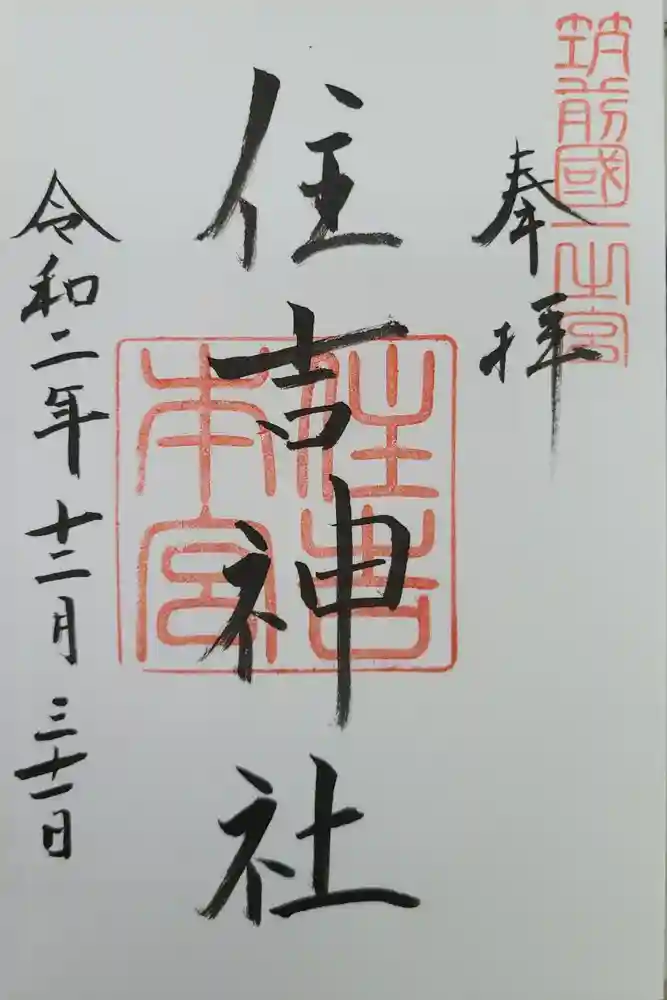 筑前國一之宮
奉拝
住吉神社
住吉本宮
令和二年十二月三十一日